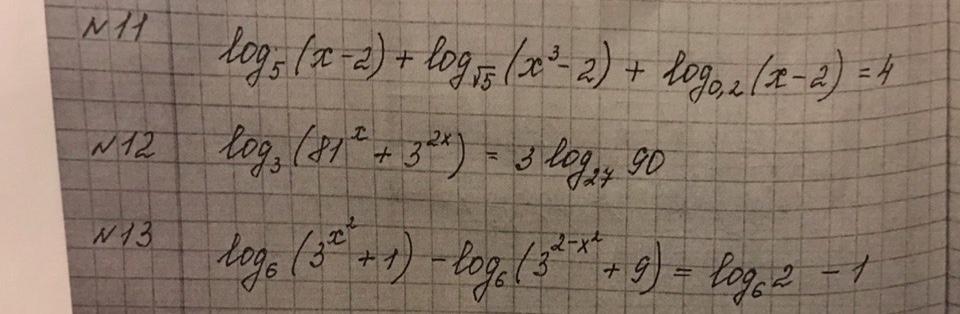 №11 log₅(x-2) + log_√5(x³-2) + log₀,₂(x-2) = 4
№12 log₃(81ˣ + 3²ˣ) = 3 log₂₇ 90
№13 log₆(3^x² + 1) - log₆(3^2-x² + 9) = log₆2 - 1